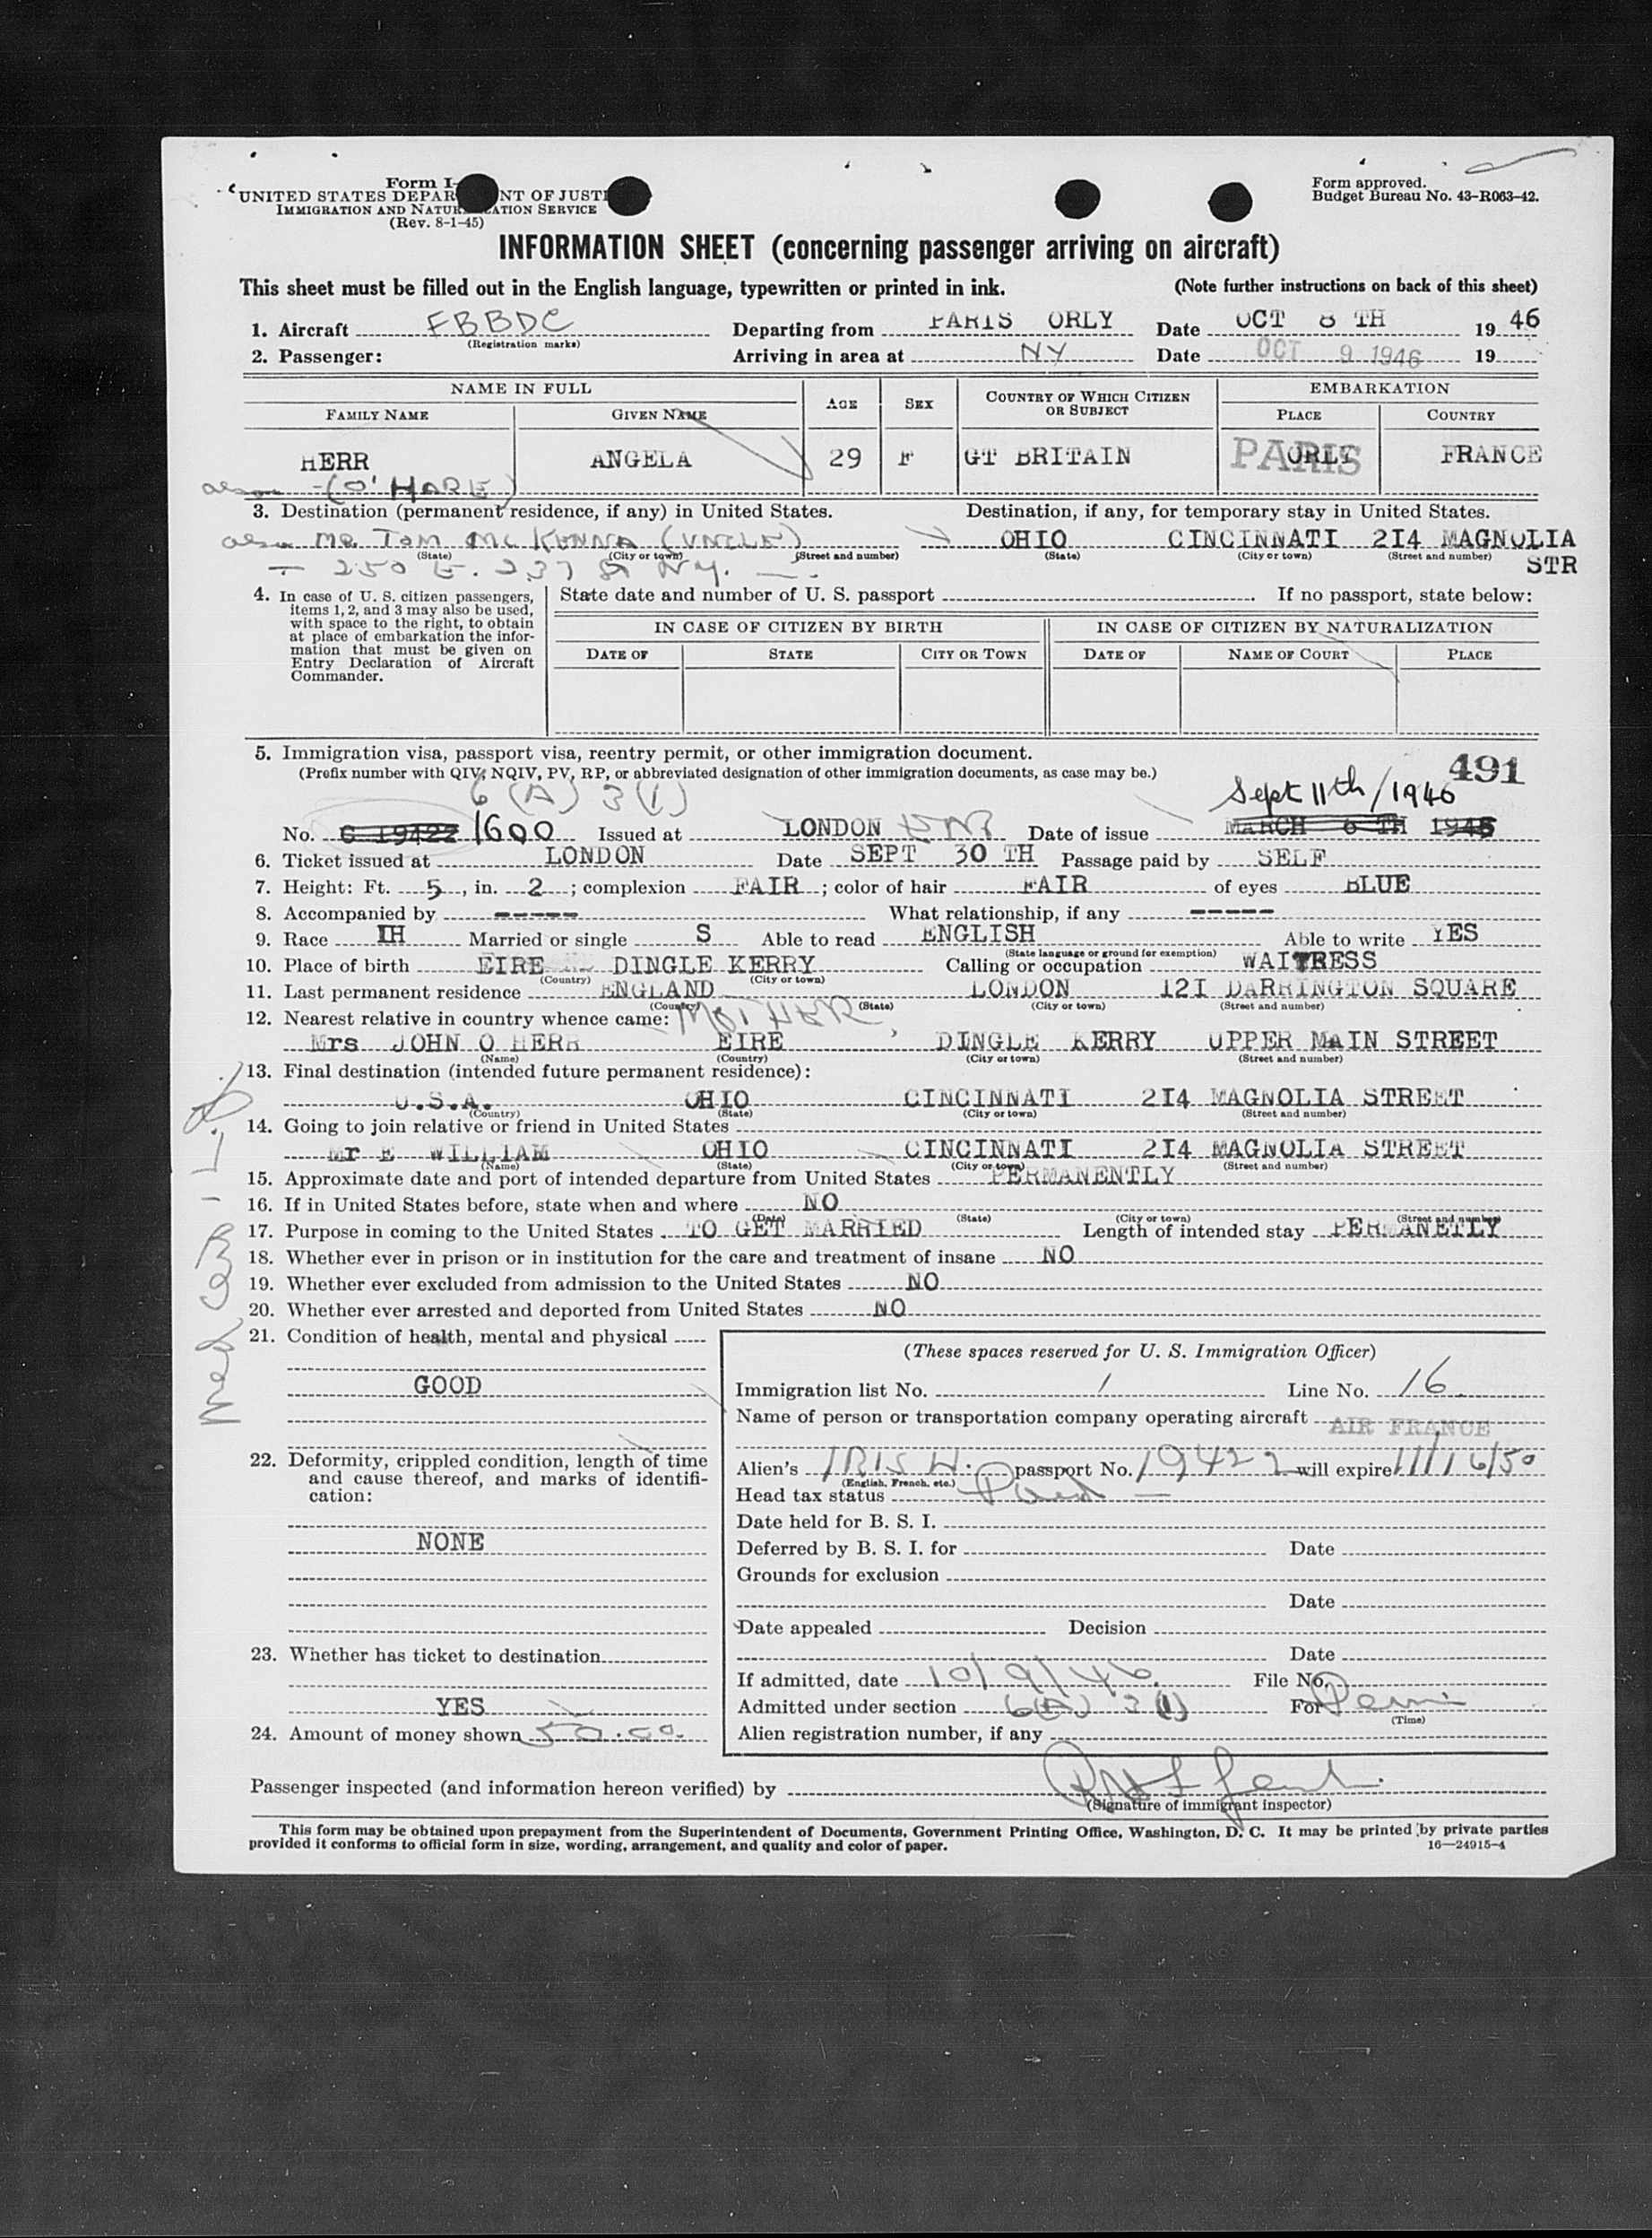 Form I-
UNITED STATES DEPAR NT OF JUSTI
IMMIGRATION AND NATUR ATION SERVICE
(Rev. 8-1-45)
Form approved.
Budget Bureau No. 43-R063-42.
INFORMATION SHEET (concerning passenger arriving on aircraft)
This sheet must be filled out in the English language, typewritten or printed in ink. (Note further instructions on back of this sheet)
1. Aircraft FBBDC Departing from PARIS ORLY Date OCT 8 TH 19 46
(Registration marks)
2. Passenger: Arriving in area at NY Date OCT 9 1946 19
NAME IN FULL AGE SEX COUNTRY OF WHICH CITIZEN OR SUBJECT EMBARKATION
FAMILY NAME GIVEN NAME PLACE COUNTRY
HERR ANGELA 29 F GT BRITAIN PARIS ORLY FRANCE
(O'HARE)
3. Destination (permanent residence, if any) in United States. Destination, if any, for temporary stay in United States.
also Mr Tom McKenna (UNCLE) OHIO CINCINNATI 214 MAGNOLIA
(State) (City or town) (Street and number) (State) (City or town) (Street and number)
250 E. 237 St NY. STR
4. In case of U. S. citizen passengers, items 1, 2, and 3 may also be used, with space to the right, to obtain at place of embarkation the information that must be given on Entry Declaration of Aircraft Commander.
State date and number of U. S. passport If no passport, state below:
IN CASE OF CITIZEN BY BIRTH IN CASE OF CITIZEN BY NATURALIZATION
DATE OF STATE CITY OR TOWN DATE OF NAME OF COURT PLACE
5. Immigration visa, passport visa, reentry permit, or other immigration document. 491
(Prefix number with QIV, NQIV, PV, RP, or abbreviated designation of other immigration documents, as case may be.)
6(A) 3(1) Sept 11th/1946
No. G 19422 1600 Issued at LONDON Date of issue MARCH 6 TH 1945
6. Ticket issued at LONDON Date SEPT 30 TH Passage paid by SELF
7. Height: Ft. 5, in. 2; complexion FAIR; color of hair FAIR of eyes BLUE
8. Accompanied by ----- What relationship, if any -----
9. Race IH Married or single S Able to read ENGLISH Able to write YES
(State language or ground for exemption)
10. Place of birth EIRE DINGLE KERRY Calling or occupation WAITRESS
(Country) (City or town)
11. Last permanent residence ENGLAND LONDON 121 DARRINGTON SQUARE
(Country) (State) (City or town) (Street and number)
12. Nearest relative in country whence came: MOTHER
Mrs JOHN O HERR EIRE DINGLE KERRY UPPER MAIN STREET
(Name) (Country) (City or town) (Street and number)
13. Final destination (intended future permanent residence):
U.S.A. OHIO CINCINNATI 214 MAGNOLIA STREET
(Country) (State) (City or town) (Street and number)
14. Going to join relative or friend in United States
Mr E WILLIAM OHIO CINCINNATI 214 MAGNOLIA STREET
(Name) (State) (City or town) (Street and number)
15. Approximate date and port of intended departure from United States PERMANENTLY
16. If in United States before, state when and where NO
(Date) (State) (City or town) (Street and number)
17. Purpose in coming to the United States TO GET MARRIED Length of intended stay PERMANETLY
18. Whether ever in prison or in institution for the care and treatment of insane NO
19. Whether ever excluded from admission to the United States NO
20. Whether ever arrested and deported from United States NO
21. Condition of health, mental and physical
GOOD
22. Deformity, crippled condition, length of time and cause thereof, and marks of identification:
NONE
23. Whether has ticket to destination
YES
24. Amount of money shown 50.00
(These spaces reserved for U. S. Immigration Officer)
Immigration list No. 1 Line No. 16
Name of person or transportation company operating aircraft AIR FRANCE
Alien's IRISH passport No. 19422 will expire 11/16/50
(English, French, etc.)
Head tax status Paid
Date held for B. S. I.
Deferred by B. S. I. for Date
Grounds for exclusion
Date
Date appealed Decision
Date
If admitted, date 10/9/46 File No.
Admitted under section 6(A) 3(1) For Perm
(Time)
Alien registration number, if any
Passenger inspected (and information hereon verified) by
(Signature of immigrant inspector)
This form may be obtained upon prepayment from the Superintendent of Documents, Government Printing Office, Washington, D. C. It may be printed by private parties
provided it conforms to official form in size, wording, arrangement, and quality and color of paper. 16—24915-4